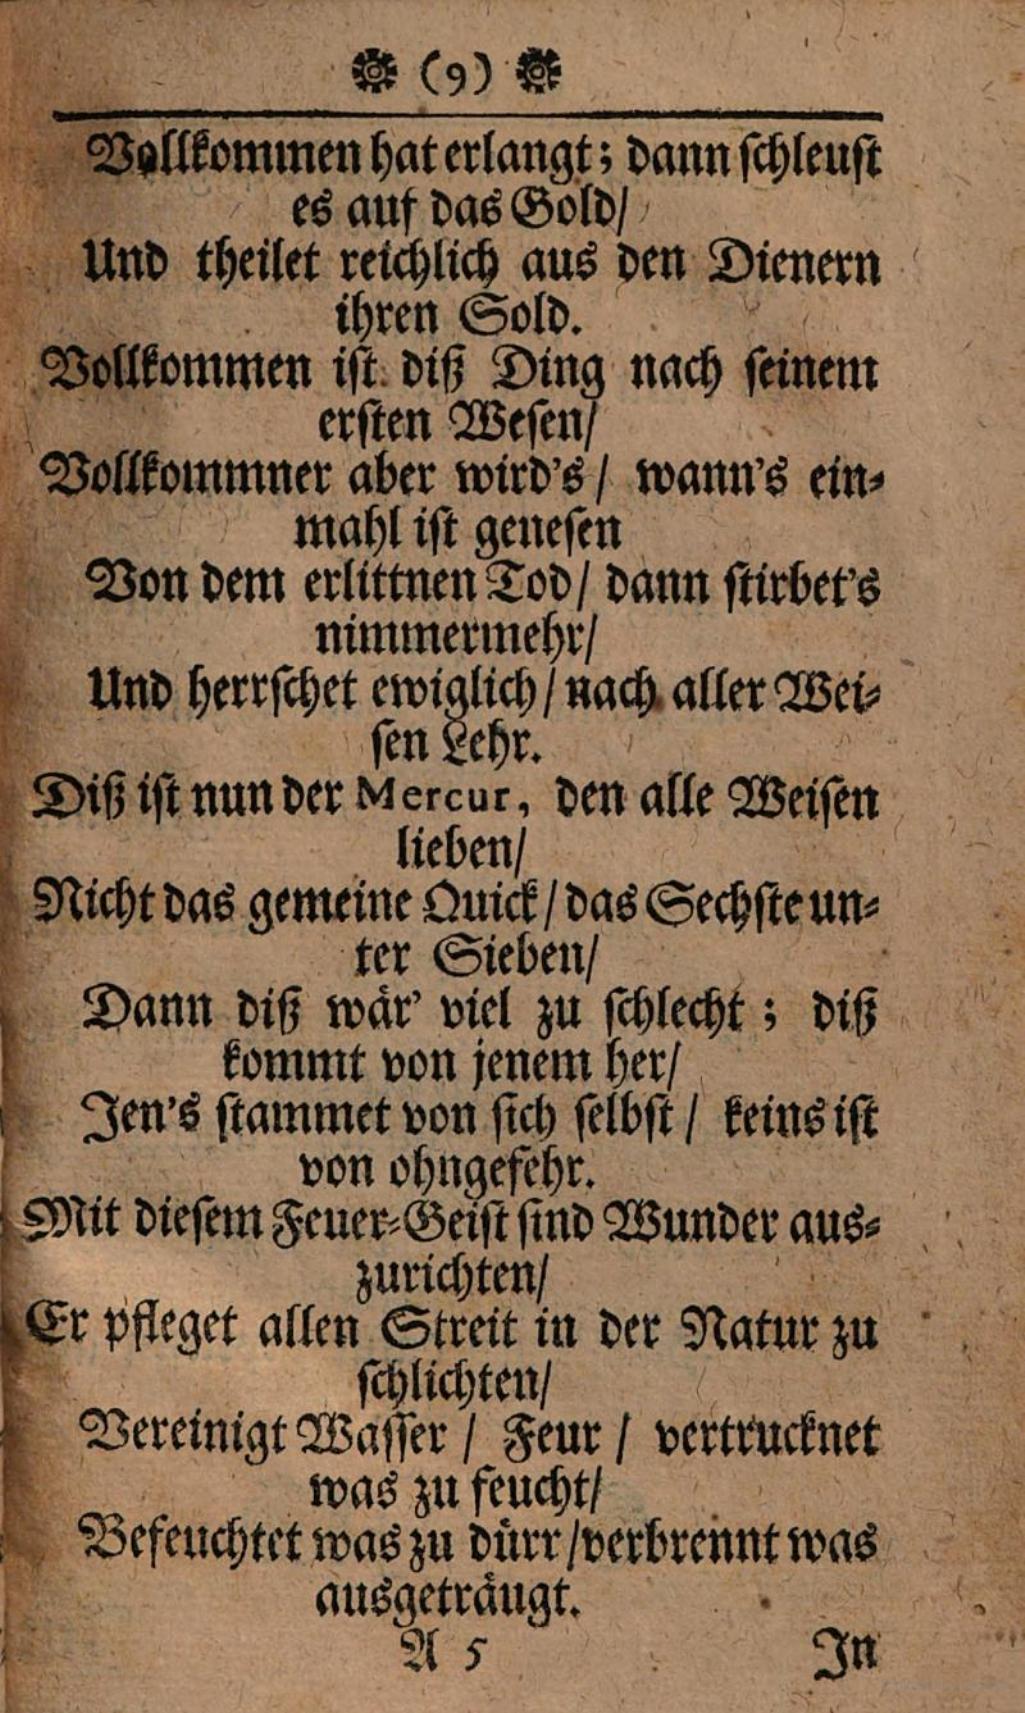 (9)
Vollkommen hat erlangt; dann schleust
es auf das Gold/
Und theilet reichlich aus den Dienern
ihren Sold.
Vollkommen ist diß Ding nach seinem
ersten Wesen/
Vollkommner aber wird's/ wann's ein-
mahl ist genesen
Von dem erlittnen Tod/ dann stirbet's
nimmermehr/
Und herrschet ewiglich/ nach aller Wei-
sen Lehr.
Diß ist nun der Mercur, den alle Weisen
lieben/
Nicht das gemeine Quick/ das Sechste un-
ter Sieben/
Dann diß wär' viel zu schlecht; diß
kommt von jenem her/
Jen's stammet von sich selbst/ keins ist
von ohngefehr.
Mit diesem Feuer-Geist sind Wunder aus-
zurichten/
Er pfleget allen Streit in der Natur zu
schlichten/
Vereinigt Wasser/ Feur/ vertrucknet
was zu feucht/
Befeuchtet was zu dürr/ verbrennt was
ausgeträugt.
A 5 In